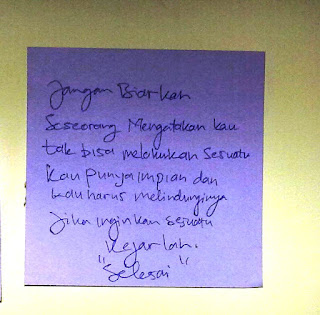 Jangan Biarkan
Seseorang Mengatakan kau
tak bisa melakukan Sesuatu
Kau punya impian dan
kau harus melindunginya
Jika inginkan sesuatu
Kejarlah.
"Selesai"